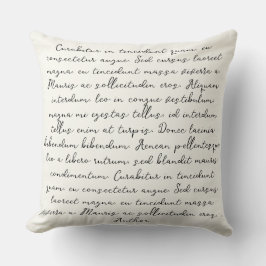 Curabitur in tincidunt quam, eu
consectetur augue. Sed cursus, laoreet
magna eu tincidunt massa viverra a.
Mauris ac sollicitudin eros. Aliquam
interdum leo in congue vestibulum.
magna mi egestas tellus, id interdum
tellus enim at turpis. Donec lacinia
bibendum bibendum. Aenean pellentesque
leo a libero rutrum, sed blandit mauris
condimentum. Curabitur in tincidunt
quam, eu consectetur augue. Sed cursus
laoreet magna eu tincidunt massa
viverra a. Mauris ac sollicitudin eros.
Author